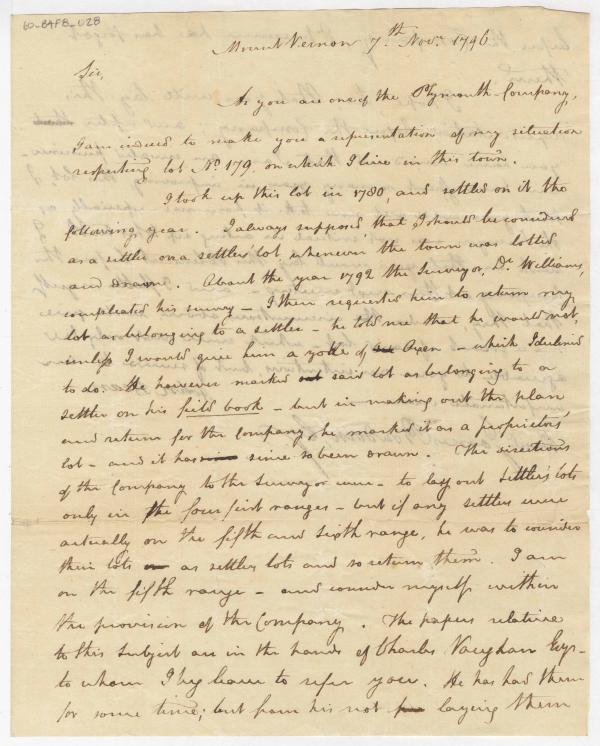 60-B4F8-028
Mount Vernon 7th Novr. 1796
Sir,
As you are one of the Plymouth Company,
I am induced to make you a representation of my situation
respecting lot No. 179, on which I live in this town.
I took up this lot in 1780, and settled on it the
following year. I always supposed that I should be considered
as a settler on a settlers' lot, whenever the town was lotted
and drawn. About the year 1792 the Surveyor, Dr. Williams,
compleated his survey – I then requested him to return my
lot as belonging to a settler – he told me that he would not,
unless I would give him a yoke of Oxen – which I declined
to do. He however marked said lot as belonging to a
settler on his field book – but in making out the plan
and return for the Company, he marked it as a proprietors'
lot – and it has since so been drawn. The directions
of the Company to the Surveyor were – to lay out Settler's lots
only in the four first ranges – but if any settlers were
actually on the fifth and sixth range, he was to consider
their lots as settlers lots and so return them. I am
on the fifth range – and consider myself within
the provision of the Company. The papers relative
to this subject are in the hands of Charles Vaughan Esqr.
to whom I beg leave to refer you. He has had them
for some time; but from his not laying them